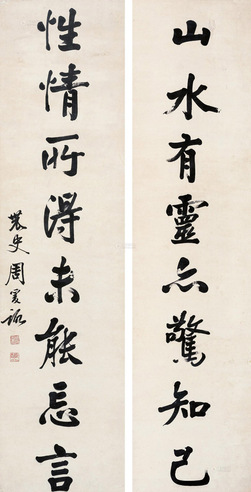 山水有靈亦驚知己
性情所得未能忘言
農史周爰諏